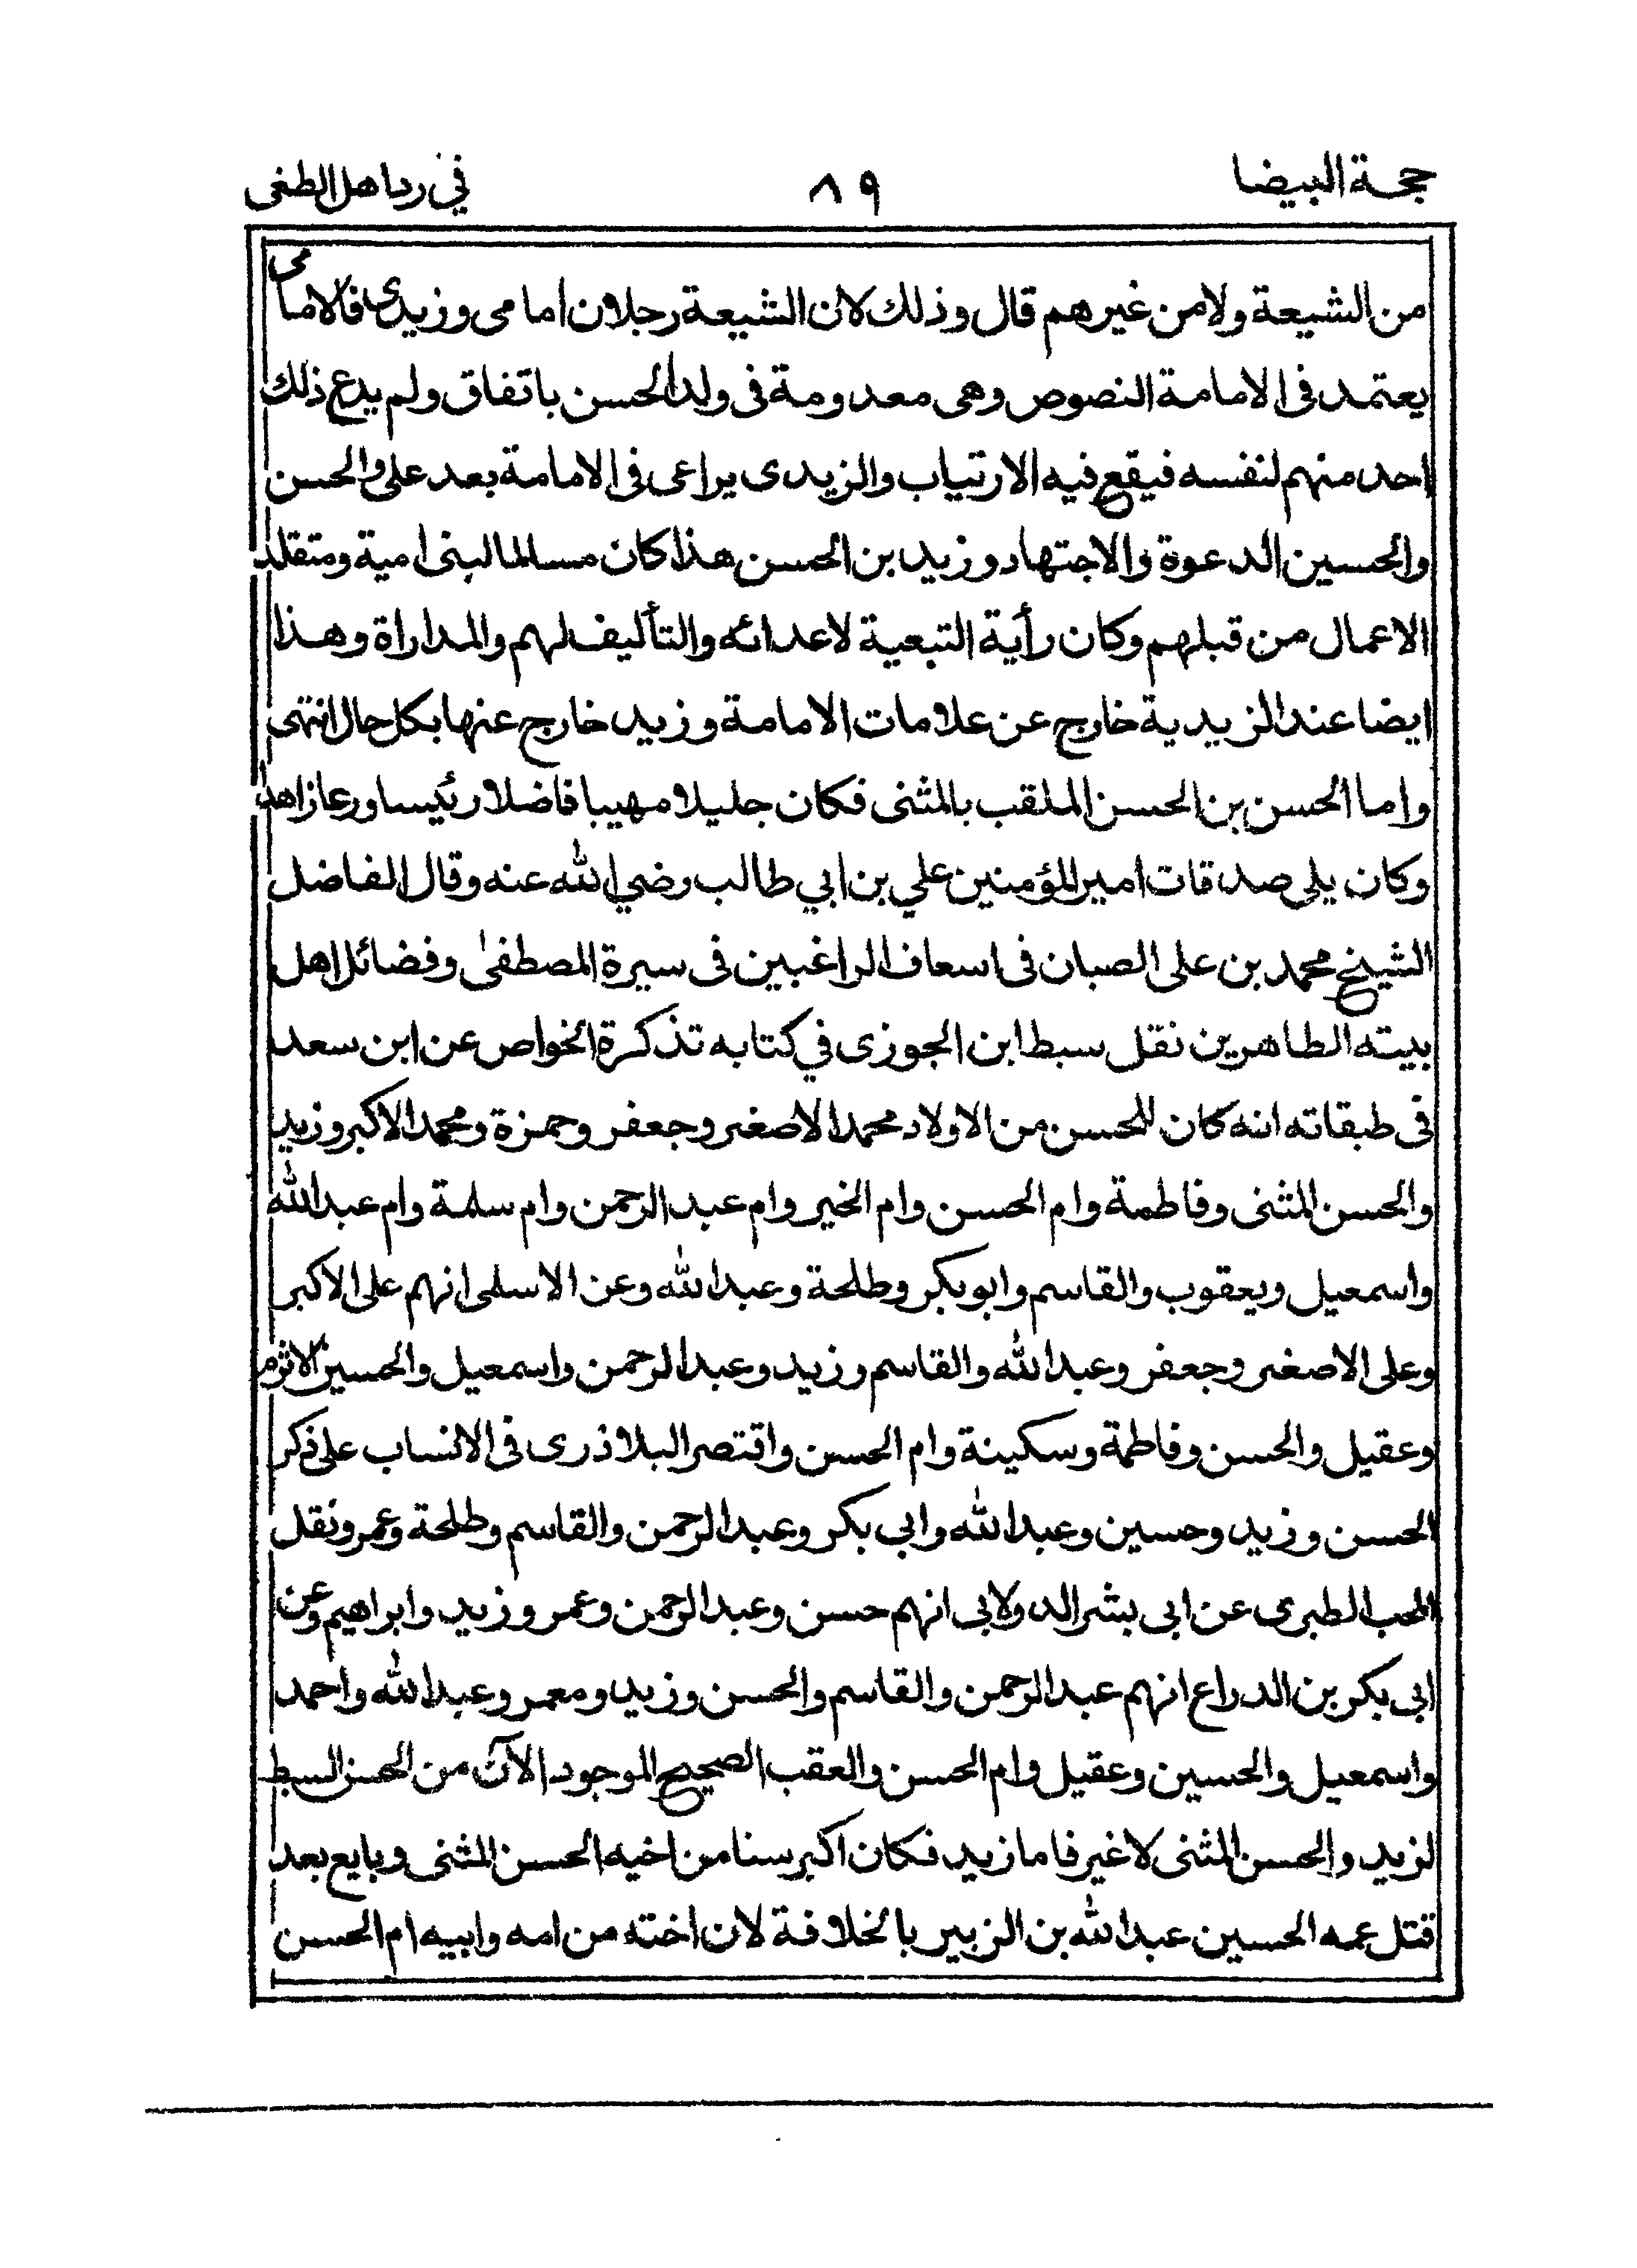 حجة البيضا ٨٩ في رد اهل الطغى
من الشيعة ولا من غيرهم قال وذلك لان الشيعة رجلان امامى وزيدى فالامامى
يعتمد فى الامامة النصوص وهى معدومة فى ولد الحسن باتفاق ولم يدع ذلك
احد منهم لنفسه فيقع فيه الارتياب والزيدى يراعى فى الامامة بعد على والحسن
والحسين الدعوة والاجتهاد وزيد بن الحسن هذا كان مسالما لبنى امية ومتقلد
الاعمال من قبلهم وكان رأية التبعية لاعدائه والتأليف لهم والمداراة وهذا
ايضا عند الزيدية خارج عن علامات الامامة وزيد خارج عنها بكل حال انتهى
واما الحسن بن الحسن الملقب بالمثنى فكان جليلا مهيبا فاضلا رئيسا ورعا زاهدا
وكان يلى صدقات امير المؤمنين علي بن ابي طالب رضي الله عنه وقال الفاضل
الشيخ محمد بن على الصبان فى اسعاف الراغبين فى سيرة المصطفىٰ وفضائل اهل
بيته الطاهرين نقل سبط ابن الجوزى في كتابه تذكرة الخواص عن ابن سعد
فى طبقاته انه كان للحسن من الاولاد محمد الاصغر وجعفر وحمزة ومحمد الاكبر وزيد
والحسن المثنى وفاطمة وام الحسن وام الخير وام عبد الرحمن وام سلمة وام عبد الله
واسمعيل ويعقوب والقاسم وابو بكر وطلحة وعبد الله وعن الاسلمى انهم على الاكبر
وعلى الاصغر وجعفر وعبد الله والقاسم وزيد وعبد الرحمن واسمعيل والحسين الاثرم
وعقيل والحسن وفاطمة وسكينة وام الحسن واقتصر البلاذرى فى الانساب على ذكر
الحسن وزيد وحسين وعبد الله وابى بكر وعبد الرحمن والقاسم وطلحة وعمر ونقل
المحب الطبرى عن ابى بشر الدولابى انهم حسن وعبد الرحمن وعمر وزيد وابراهيم وعن
ابى بكر بن الدراع انهم عبد الرحمن والقاسم والحسن وزيد ومعمر وعبد الله واحمد
واسمعيل والحسين وعقيل وام الحسن والعقب الصحيح الموجود الآن من الحسن السبط
لزيد والحسن المثنى لاغير فاما زيد فكان اكبر سنا من اخيه الحسن المثنى وبايع بعد
قتل عمه الحسين عبد الله بن الزبير بالخلافة لان اخته من امه وابيه ام الحسن